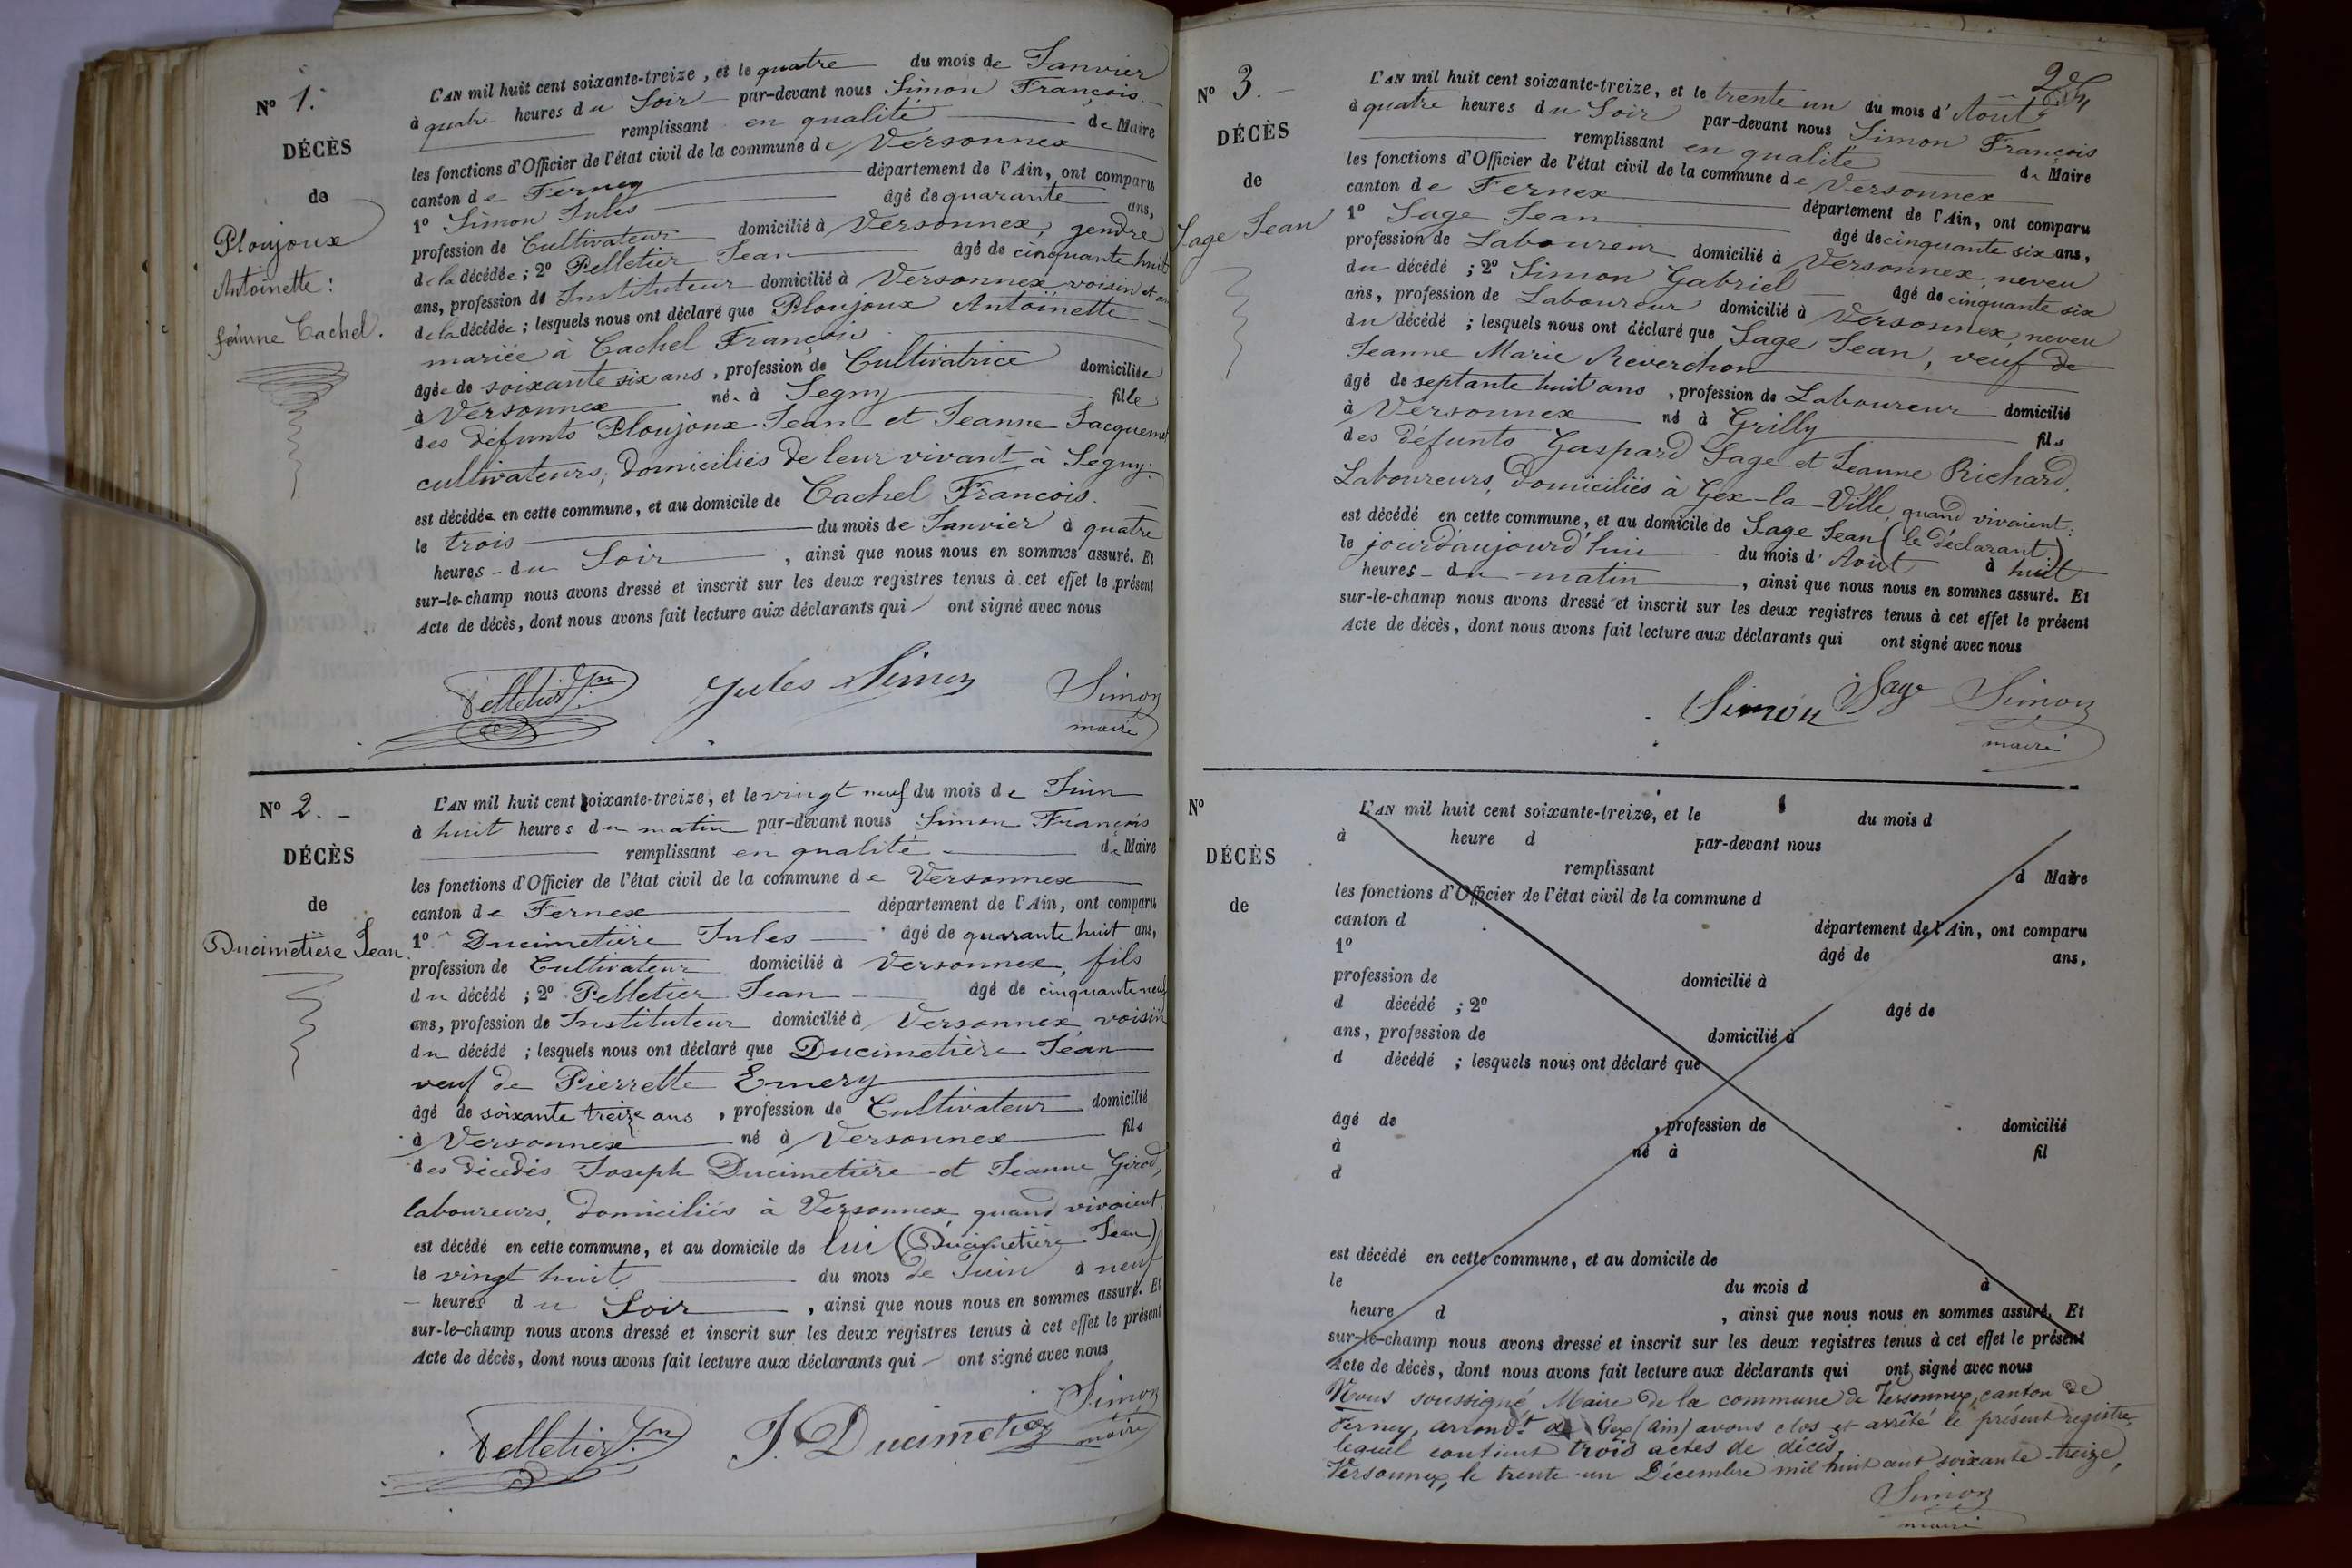 N° 1.
DÉCÈS
de
Ploujoux
Antoinette :
femme Cachel.
L'AN mil huit cent soixante-treize, et le quatre du mois de Janvier
à quatre heures du Soir par-devant nous Simon François.
remplissant en qualité de Maire
les fonctions d'Officier de l'état civil de la commune de Versonnex
canton de Ferney département de l'Ain, ont comparu
1° Simon Jules âgé de quarante ans,
profession de Cultivateur domicilié à Versonnex, gendre
de la décédée ; 2° Pelletier Jean âgé de cinquante huit
ans, profession de Instituteur domicilié à Versonnex voisin et
de la décédée ; lesquels nous ont déclaré que Ploujoux Antoinette
mariée à Cachel François
âgée de soixante six ans, profession de Cultivatrice domiciliée
à Versonnex né à Segny fille
des défunts Ploujoux Jean et Jeanne Jacquemet
cultivateurs, domiciliés de leur vivant à Segny.
est décédée en cette commune, et au domicile de Cachel François.
le trois du mois de Janvier à quatre
heures du Soir, ainsi que nous nous en sommes assuré. Et
sur-le-champ nous avons dressé et inscrit sur les deux registres tenus à cet effet le présent
Acte de décès, dont nous avons fait lecture aux déclarants qui ont signé avec nous
Pelletier Jn Jules Simon Simon
maire
N° 2. -
DÉCÈS
de
Ducimetière Jean.
L'AN mil huit cent soixante-treize, et le vingt neuf du mois de Juin
à huit heures du matin par-devant nous Simon François
remplissant en qualité de Maire
les fonctions d'Officier de l'état civil de la commune de Versonnex
canton de Fernex département de l'Ain, ont comparu
1° Ducimetière Jules âgé de quarante huit ans,
profession de Cultivateur domicilié à Versonnex, fils
du décédé ; 2° Pelletier Jean âgé de cinquante neuf
ans, profession de Instituteur domicilié à Versonnex, voisin
du décédé ; lesquels nous ont déclaré que Ducimetière Jean
veuf de Pierrette Emery
âgé de soixante treize ans, profession de Cultivateur domicilié
à Versonnex né à Versonnex fils
des décédés Joseph Ducimetière et Jeanne Girod,
laboureurs, domiciliés à Versonnex, quand vivaient.
est décédé en cette commune, et au domicile de lui (Ducimetière Jean)
le vingt huit du mois de Juin à neuf
heures du Soir, ainsi que nous nous en sommes assuré. Et
sur-le-champ nous avons dressé et inscrit sur les deux registres tenus à cet effet le présent
Acte de décès, dont nous avons fait lecture aux déclarants qui ont signé avec nous
Pelletier Jn J. Ducimetière Simon
maire
N° 3. -
DÉCÈS
de
Sage Jean
L'AN mil huit cent soixante-treize, et le trente un du mois d'Août
à quatre heures du Soir par-devant nous Simon François
remplissant en qualité de Maire
les fonctions d'Officier de l'état civil de la commune de Versonnex
canton de Fernex département de l'Ain, ont comparu
1° Sage Jean âgé de cinquante six ans,
profession de Laboureur domicilié à Versonnex, neveu
du décédé ; 2° Simon Gabriel âgé de cinquante six
ans, profession de Laboureur domicilié à Versonnex, neveu
du décédé ; lesquels nous ont déclaré que Sage Jean, veuf de
Jeanne Marie Reverchon
âgé de septante huit ans, profession de Laboureur domicilié
à Versonnex né à Grilly fils
des défunts Gaspard Sage et Jeanne Richard,
Laboureurs, domiciliés à Gex-la-Ville, quand vivaient :
est décédé en cette commune, et au domicile de Sage Jean (le déclarant.)
le jourd'aujourd'hui du mois d'Août à huit
heures du matin, ainsi que nous nous en sommes assuré. Et
sur-le-champ nous avons dressé et inscrit sur les deux registres tenus à cet effet le présent
Acte de décès, dont nous avons fait lecture aux déclarants qui ont signé avec nous
Simon Sage Simon
maire
N°
DÉCÈS
de
L'AN mil huit cent soixante-treize, et le du mois d
à heure d par-devant nous
remplissant d Maire
les fonctions d'Officier de l'état civil de la commune d
canton d département de l'Ain, ont comparu
1° âgé de ans,
profession de domicilié à
d décédé ; 2° âgé de
ans, profession de domicilié à
d décédé ; lesquels nous ont déclaré que
âgé de , profession de domicilié
à né à fil
d
est décédé en cette commune, et au domicile de
le du mois d à
heure d , ainsi que nous nous en sommes assuré. Et
sur-le-champ nous avons dressé et inscrit sur les deux registres tenus à cet effet le présent
Acte de décès, dont nous avons fait lecture aux déclarants qui ont signé avec nous
Nous soussigné, Maire de la commune de Versonnex, canton de
Ferney, arrondt de Gex (Ain) avons clos et arrêté le présent registre,
lequel contient trois actes de décès.
Versonnex, le trente-un Décembre mil huit cent soixante-treize,
Simon
maire